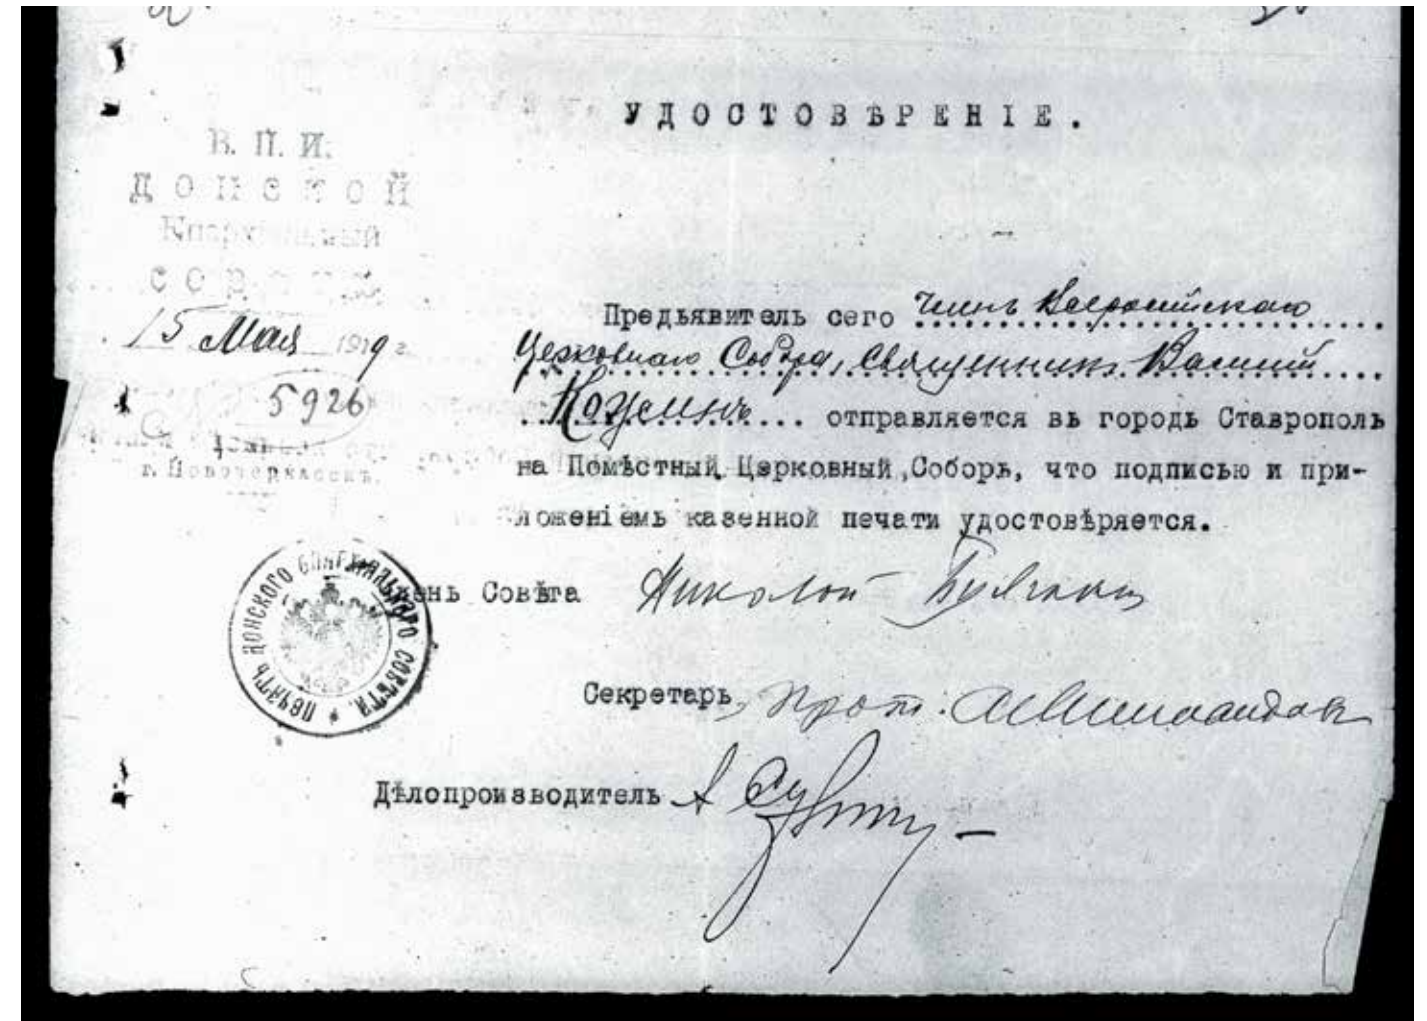 УДОСТОВѢРЕНІЕ.
В. П. И.
ДОНСКОЙ
Епархіальный
15 Мая 1919 г.
5926
г. Новочеркасскъ.
Предьявитель сего членъ Всероссійскаго
Церковнаго Собора, Священникъ Василій
Кожинъ отправляется вь городь Ставрополь
на Помѣстный Церковный Соборь, что подписью и при-
ложеніемь казенной печати удостовѣряется.
ПЕЧАТЬ ДОНСКОГО ЕПАРХІАЛЬНАГО СОВѢТА.
Члень Совѣта Николай
Секретарь, Прот.
Дѣлопроизводитель А